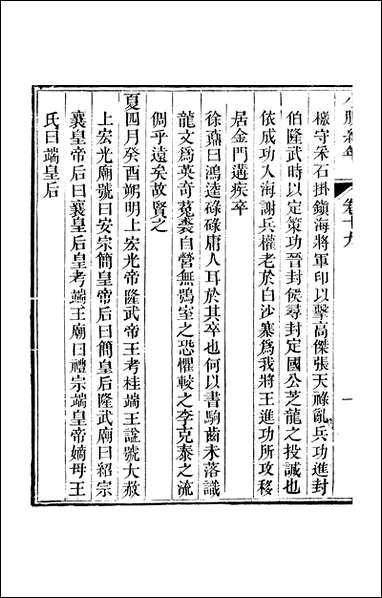 小腆紀年 卷十九 一
檄守采石掛鎮海將軍印以擊高傑張天祿亂兵功進封
伯隆武時以定策功晉封候尋封定國公芝龍之投誠也
依成功入海謝兵權老於白沙寨爲我將王進功所攻移
居金門遘疾卒
徐鼒曰鴻逵碌碌庸人耳於其卒也何以書駒齒未落識
龍文爲英奇菟裘自營無鴞室之恐懼較之李克泰之流
倜乎遠矣故賢之
夏四月癸酉朔明上宏光帝隆武帝王考桂端王諡號大赦
上宏光廟號曰安宗簡皇帝后曰簡皇后隆武廟曰紹宗
襄皇帝后曰襄皇后皇考端王廟曰禮宗端皇帝嫡母王
氏曰端皇后